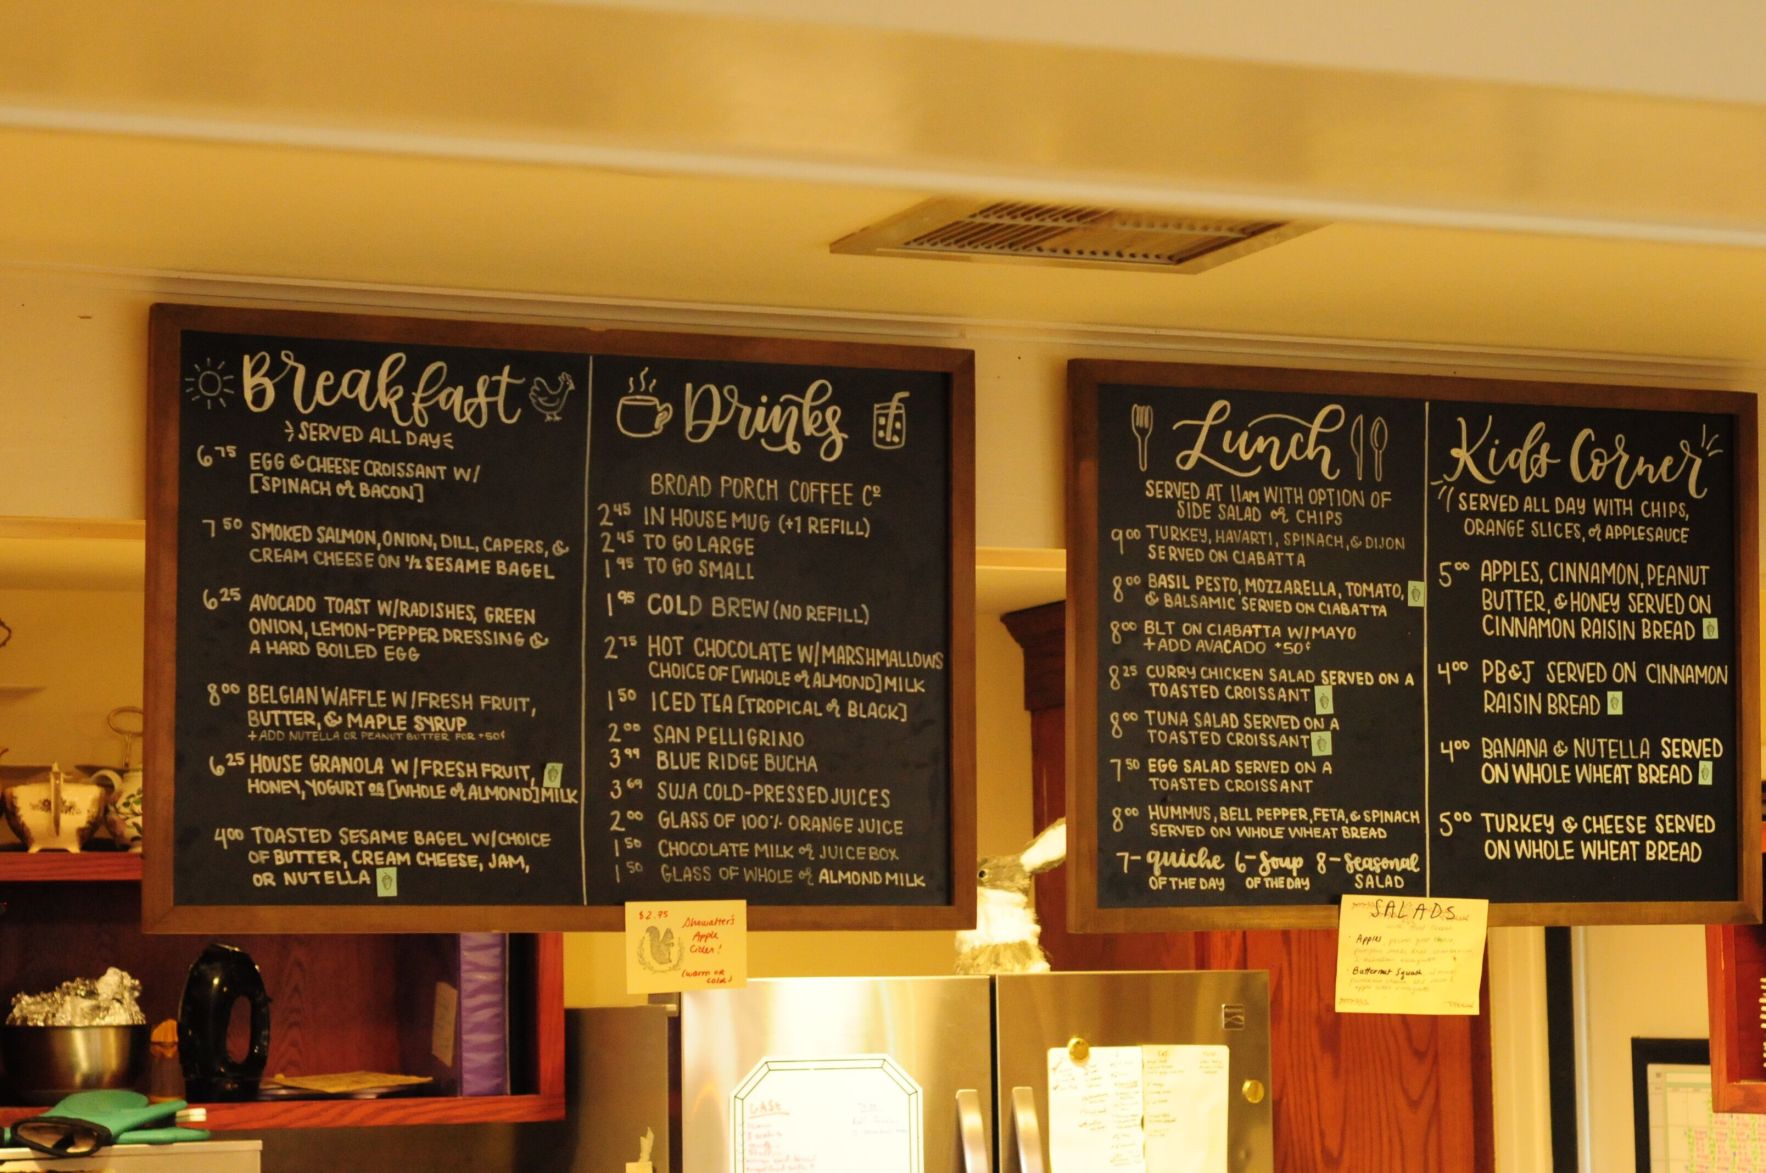 Breakfast
SERVED ALL DAY
6 75 EGG & CHEESE CROISSANT W/
[SPINACH or BACON]
7 50 SMOKED SALMON, ONION, DILL, CAPERS, &
CREAM CHEESE ON 1/2 SESAME BAGEL
6 25 AVOCADO TOAST W/RADISHES, GREEN
ONION, LEMON-PEPPER DRESSING &
A HARD BOILED EGG
8 00 BELGIAN WAFFLE W/FRESH FRUIT,
BUTTER, & MAPLE SYRUP
+ ADD NUTELLA OR PEANUT BUTTER FOR +50¢
6 25 HOUSE GRANOLA W/FRESH FRUIT,
HONEY, YOGURT OR [WHOLE or ALMOND] MILK
4 00 TOASTED SESAME BAGEL W/CHOICE
OF BUTTER, CREAM CHEESE, JAM,
OR NUTELLA
Drinks
BROAD PORCH COFFEE Co
2 45 IN HOUSE MUG (+1 REFILL)
2 45 TO GO LARGE
1 95 TO GO SMALL
1 95 COLD BREW (NO REFILL)
2 75 HOT CHOCOLATE W/MARSHMALLOWS
CHOICE OF [WHOLE or ALMOND] MILK
1 50 ICED TEA [TROPICAL or BLACK]
2 00 SAN PELLIGRINO
3 99 BLUE RIDGE BUCHA
3 69 SUJA COLD-PRESSED JUICES
2 00 GLASS OF 100% ORANGE JUICE
1 50 CHOCOLATE MILK or JUICEBOX
1 50 GLASS OF WHOLE or ALMOND MILK
$2.95 Showalter's
Apple
Cider!
(warm or
cold)
Lunch
SERVED AT 11AM WITH OPTION OF
SIDE SALAD or CHIPS
9 00 TURKEY, HAVARTI, SPINACH, & DIJON
SERVED ON CIABATTA
8 00 BASIL PESTO, MOZZARELLA, TOMATO,
& BALSAMIC SERVED ON CIABATTA
8 00 BLT ON CIABATTA W/MAYO
+ ADD AVACADO +50¢
8 25 CURRY CHICKEN SALAD SERVED ON A
TOASTED CROISSANT
8 00 TUNA SALAD SERVED ON A
TOASTED CROISSANT
7 50 EGG SALAD SERVED ON A
TOASTED CROISSANT
8 00 HUMMUS, BELL PEPPER, FETA, & SPINACH
SERVED ON WHOLE WHEAT BREAD
7- quiche 6- Soup 8- Seasonal
OF THE DAY OF THE DAY SALAD
Kids Corner
SERVED ALL DAY WITH CHIPS,
ORANGE SLICES, or APPLESAUCE
5 00 APPLES, CINNAMON, PEANUT
BUTTER, & HONEY SERVED ON
CINNAMON RAISIN BREAD
4 00 PB&J SERVED ON CINNAMON
RAISIN BREAD
4 00 BANANA & NUTELLA SERVED
ON WHOLE WHEAT BREAD
5 00 TURKEY & CHEESE SERVED
ON WHOLE WHEAT BREAD
SALADS
Apples
Butternut Squash